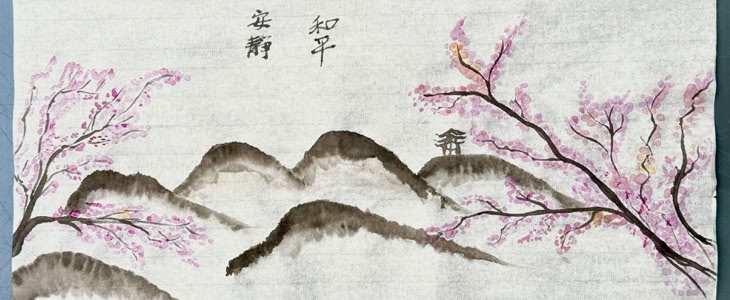 和平
安靜